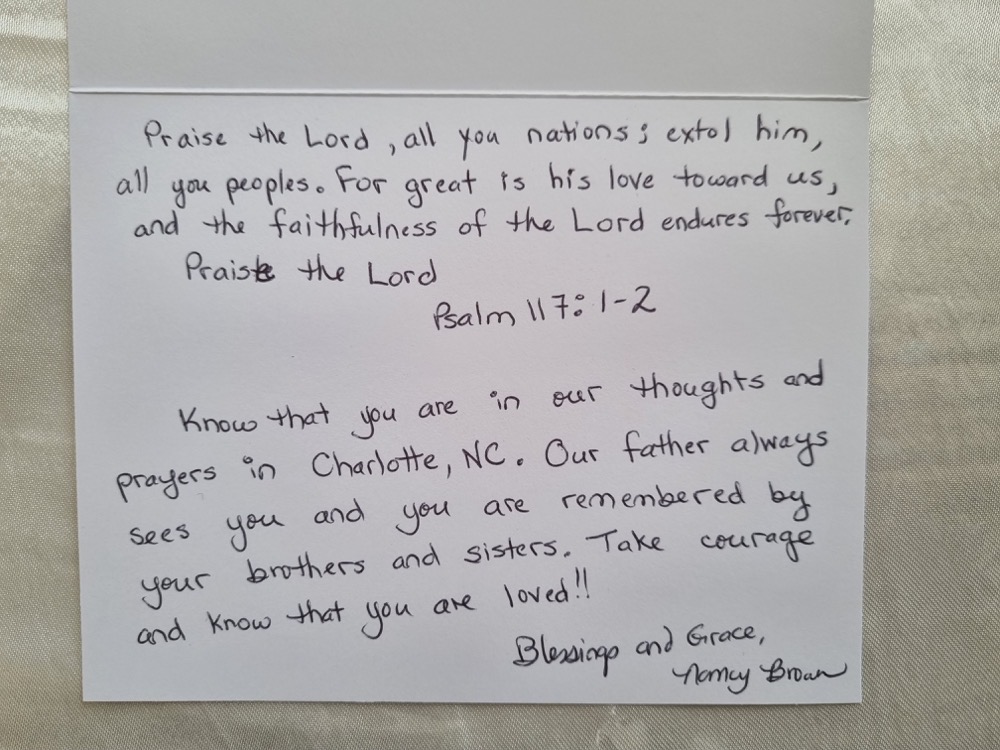 Praise the Lord, all you nations; extol him,
all you peoples. For great is his love toward us,
and the faithfulness of the Lord endures forever.
Praise the Lord
Psalm 117:1-2
Know that you are in our thoughts and
prayers in Charlotte, NC. Our father always
sees you and you are remembered by
your brothers and sisters. Take courage
and know that you are loved!!
Blessings and Grace,
Nancy Brown